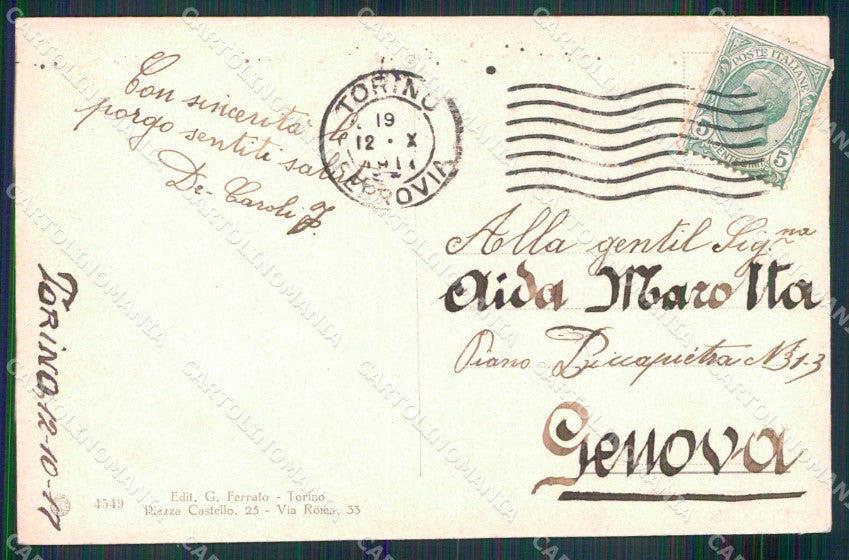 Con sincerità le
porgo sentiti saluti
De-Caroli F.
TORINO
19
12 · X
1911
FERROVIA
POSTE ITALIANE
5
5
Alla gentil Sig.na
Aida Marotta
Piano Piccapietra N 31.3
Genova
TORINO, 12-10-11
4549
Edit. G. Ferrato - Torino
Piazza Castello, 25 - Via Roma, 33
CARTOLINOMANIA